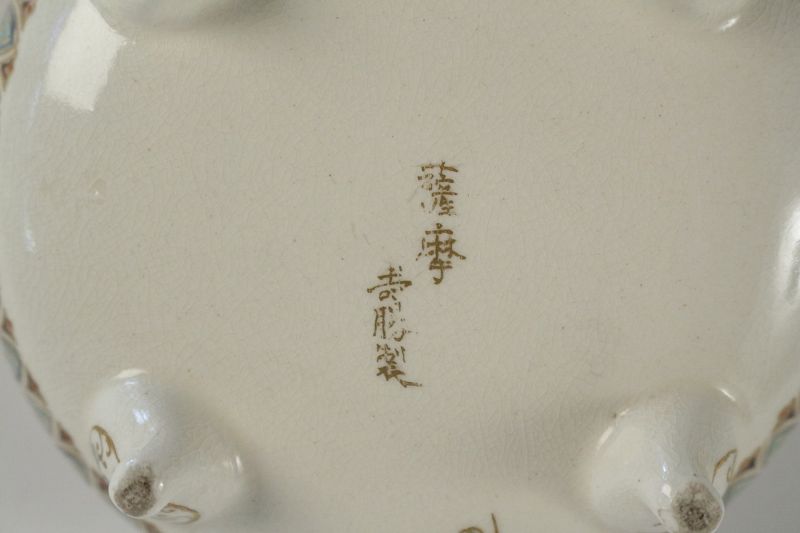 薩摩
壽勝製